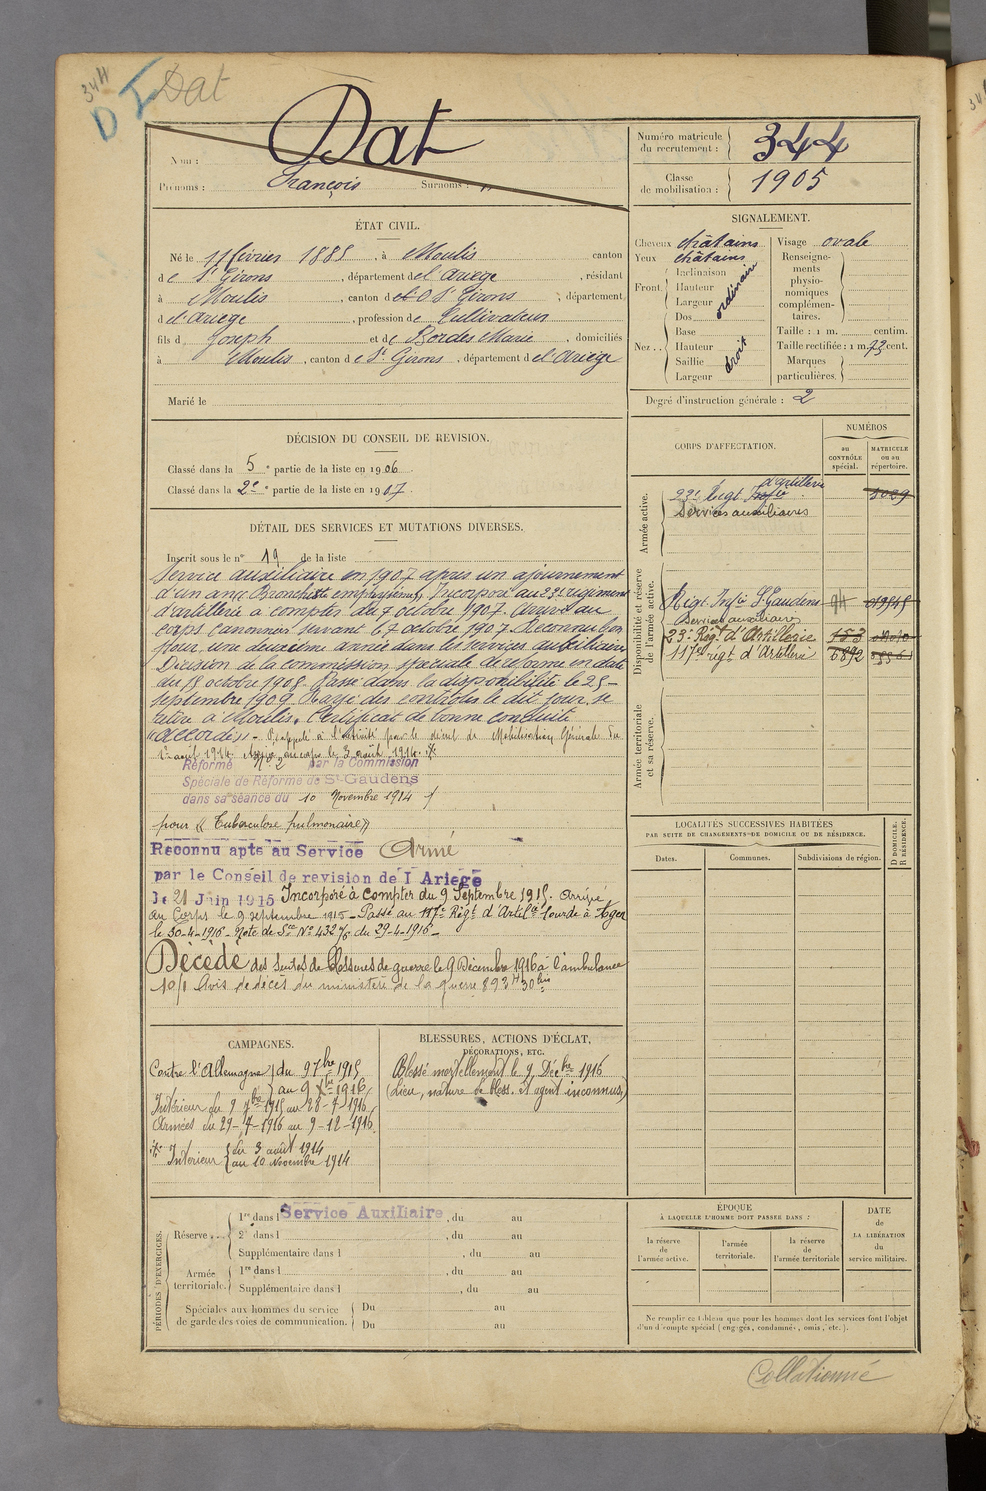 344
D I
Dat
Nom : Dat
Prénoms : François Surnoms :
Numéro matricule du recrutement : 344
Classe de mobilisation : 1905
ÉTAT CIVIL.
Né le 11 février 1885, à Moulis canton
de St Girons, département de l'Ariège, résidant
à Moulis, canton de St Girons, département
d el'Ariège, profession de Cultivateur
fils d Joseph et de Bordes Marie, domiciliés
à Moulis, canton de St Girons, département de l'Ariège
Marié le
SIGNALEMENT.
Cheveux châtains
Yeux châtains
Front. Inclinaison
Hauteur
Largeur
ordinaire
Nez .. Dos
Base
Hauteur
Saillie
Largeur
droit
Visage ovale
Renseignements physionomiques complémentaires.
Taille : 1 m. centim.
Taille rectifiée : 1 m. 73 cent.
Marques particulières.
Degré d'instruction générale : 2
DÉCISION DU CONSEIL DE REVISION.
Classé dans la 5e partie de la liste en 1906.
Classé dans la 2e partie de la liste en 1907.
DÉTAIL DES SERVICES ET MUTATIONS DIVERSES.
Inscrit sous le n° 19 de la liste
Service auxiliaire en 1907 après un ajournement
d'un an. Bronchite emphysème. Incorporé au 23e régiment
d'artillerie à compter du 7 octobre 1907. Arrivé au
corps canonnier servant le 7 octobre 1907. Reconnu bon
pour une deuxième année dans les services auxiliaires
Décision de la commission spéciale de réforme en date
du 15 octobre 1908. Passé dans la disponibilité le 25
septembre 1909. Rayé des contrôles le dit jour, se
retire à Moulis. Certificat de bonne conduite
"accordé". Rappelé à l'activité par le décret de Mobilisation Générale du
1er août 1914. Arrivé au corps le 3 août 1914.
Réformé N° 2 par la Commission
Spéciale de Réforme de St-Gaudens
dans sa séance du 10 Novembre 1914
pour « Tuberculose pulmonaire »
Reconnu apte au Service Armé
par le Conseil de revision de l'Ariege
le 21 Juin 1915 Incorporé à compter du 9 Septembre 1915. Arrivé
au Corps le 9 septembre 1915 - Passé au 117e Régt d'Artil. lourde à Agen
le 30-4-1916 - Note de Sce N° 432 du 29-4-1916
Décédé des suites de blessures de guerre le 9 Décembre 1916 à l'ambulance
10/1 Avis de décès du ministère de la guerre
CORPS D'AFFECTATION.
NUMÉROS
au CONTRÔLE spécial.
MATRICULE ou au répertoire.
Armée active.
23e Régt Infie d'artillerie
Services auxiliaires
Disponibilité et réserve de l'armée active.
Régt Infie St Gaudens
Services auxiliaires
23e Régt d'Artillerie 153
117e régt d'Artillerie 6892
Armée territoriale et sa réserve.
LOCALITÉS SUCCESSIVES HABITÉES
PAR SUITE DE CHANGEMENTS DE DOMICILE OU DE RÉSIDENCE.
D DOMICILE. R RÉSIDENCE.
Dates. Communes. Subdivisions de région.
CAMPAGNES.
Contre l'Allemagne du 9 7bre 1915
au 9 Xbre 1916
Intérieur du 9 7bre 1915 au 28-7-1916
Armées du 29-7-1916 au 9-12-1916
Intérieur du 3 août 1914
au 10 Novembre 1914
BLESSURES, ACTIONS D'ÉCLAT,
DÉCORATIONS, ETC.
Blessé mortellement le 9 Décbre 1916
(Lieu, nature de bless. et agent inconnus)
PÉRIODES D'EXERCICES.
Réserve... 1re dans l Service Auxiliaire, du au
2e dans l , du au
Supplémentaire dans l , du au
Armée territoriale. 1re dans l , du au
Supplémentaire dans l , du au
Spéciales aux hommes du service de garde des voies de communication. Du au
Du au
ÉPOQUE
À LAQUELLE L'HOMME DOIT PASSER DANS :
la réserve de l'armée active.
l'armée territoriale.
la réserve de l'armée territoriale
DATE de LA LIBÉRATION du service militaire.
Ne remplir ce tableau que pour les hommes dont les services font l'objet
d'un décompte spécial (engagés, condamnés, omis, etc.).
Collationné